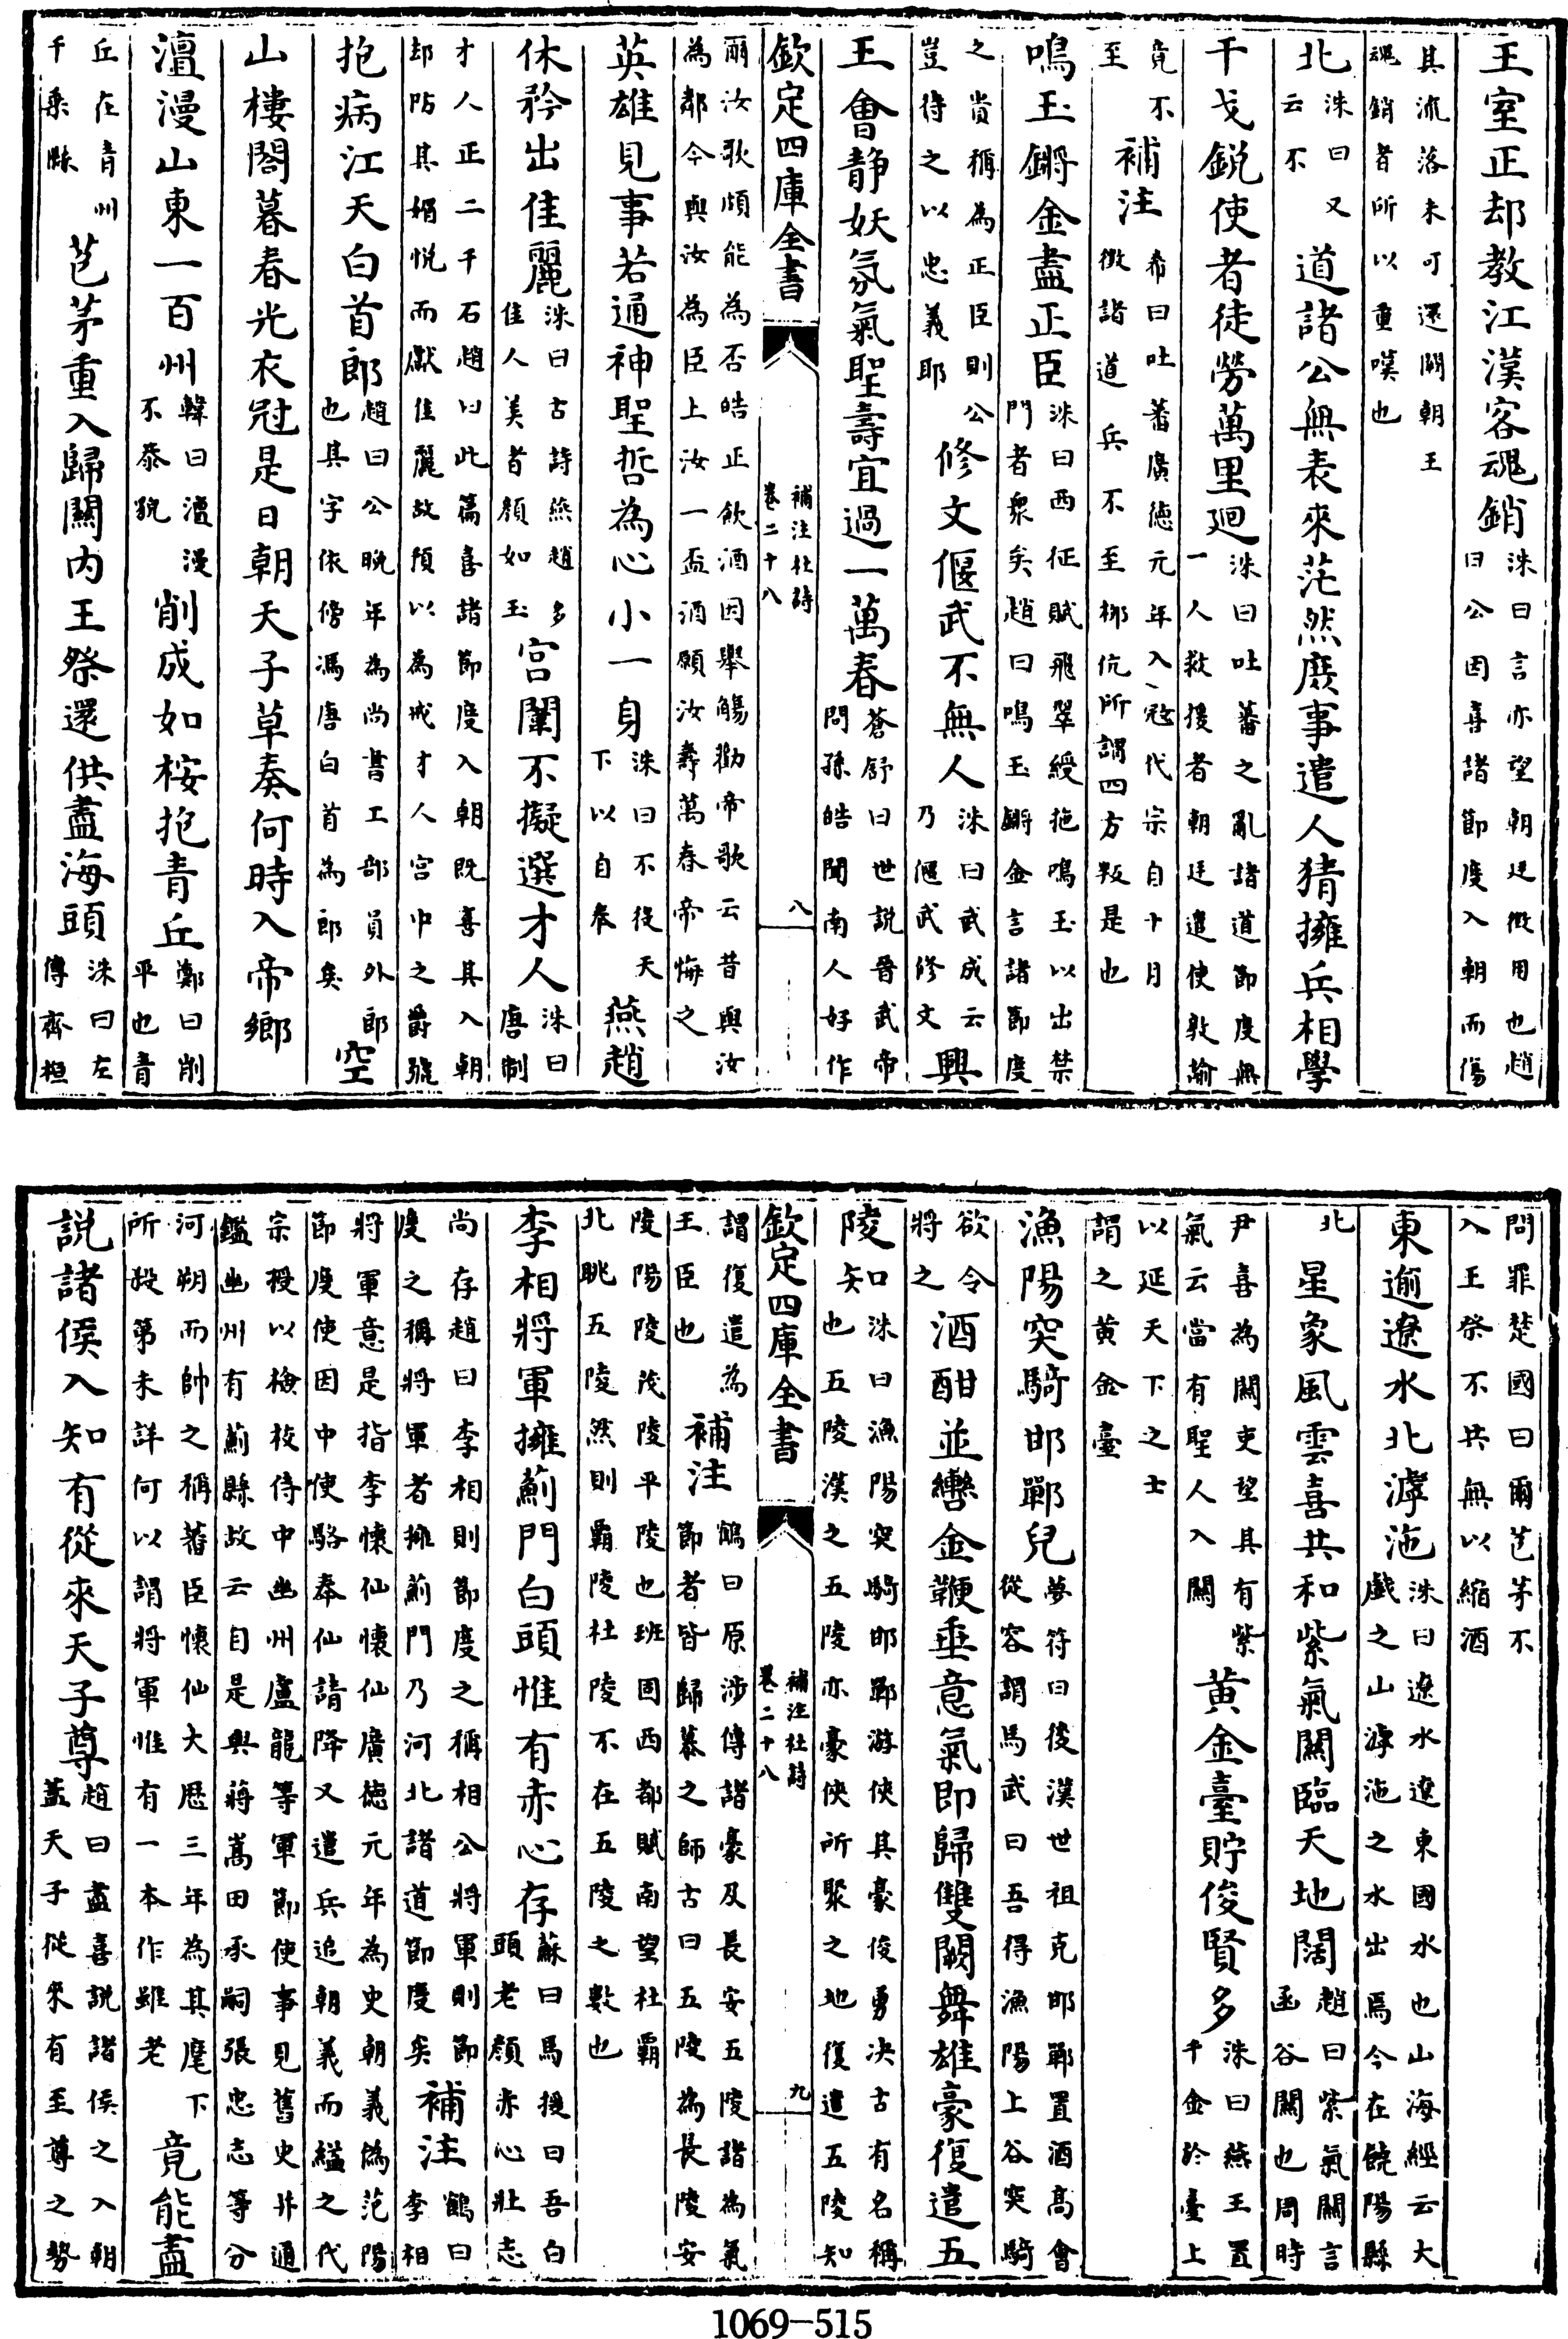 王室正却教江漢客魂銷洙曰言亦望朝廷徴用也趙曰公因喜諸節度入朝而傷
其流落未可還闕朝王魂銷者所以重嘆也
北洙曰又云不道諸公無表來茫然庶事遣人猜擁兵相學
干戈鋭使者徒勞萬里廻洙曰吐蕃之亂諸道節度無一人救援者朝廷遣使敦諭
竟不至補注希曰吐蕃廣德元年入冦代宗自十月徴諸道兵不至栁伉所謂四方叛是也
鳴玉鏘金盡正臣洙曰西征賦飛翠綬拖鳴玉以出禁門者衆矣趙曰鳴玉鏘金言諸節度
之貴稱為正臣則公豈待之以忠義耶修文偃武不無人洙曰武成云乃偃武修文興
王會静妖氛氣聖壽宜過一萬春蒼舒曰世説晉武帝問孫皓聞南人好作
欽定四庫全書 補注杜詩 卷二十八 八
爾汝歌頗能為否皓正飲酒因舉觴勸帝歌云昔與汝為鄰今與汝為臣上汝一盃酒願汝夀萬春帝悔之
英雄見事若通神聖哲為心小一身洙曰不役天下以自奉燕趙
休矜出佳麗洙曰古詩燕趙多佳人美者顔如玉宫闈不擬選才人洙曰唐制
才人正二千石趙曰此篇喜諸節度入朝既喜其入朝却防其媚悦而獻佳麗故預以為戒才人宫中之爵號
抱病江天白首郎趙曰公晚年為尚書工部員外郎也其字依傍馮唐白首為郎矣空
山樓閣暮春光衣冠是日朝天子草奏何時入帝鄉
澶漫山東一百州韓曰澶漫不泰貌削成如桉抱青丘鄭曰削平也青
丘在青州千乘縣苞茅重入歸闗内王祭還供盡海頭洙曰左傳齊桓
問罪楚國曰爾苞茅不入王祭不共無以縮酒
東逾遼水北滹沲洙曰遼水遼東國水也山海經云大戯之山滹沲之水出焉今在饒陽縣
北星象風雲喜共和紫氣闗臨天地闊趙曰紫氣闗言函谷闗也周時
尹喜為闗吏望其有紫氣云當有聖人入闗黄金臺貯俊賢多洙曰燕王置千金於臺上
以延天下之士謂之黄金臺
漁陽突騎邯鄲兒夢符曰後漢世祖克邯鄲置酒高會從容謂馬武曰吾得漁陽上谷突騎
欲令將之酒酣並轡金鞭垂意氣即歸雙闕舞雄豪復遣五
陵知洙曰漁陽突騎邯鄲游俠其豪俊勇决古有名稱也五陵漢之五陵亦豪俠所聚之地復遣五陵知
欽定四庫全書 補注杜詩 卷二十八 九
謂復遣為王臣也補注鶴曰原渉傳諸豪及長安五陵諸為氣節者皆歸慕之師古曰五陵為長陵安
陵陽陵茂陵平陵也班固西都賦南望杜霸北眺五陵然則霸陵杜陵不在五陵之數也
李相將軍擁薊門白頭惟有赤心存蘇曰馬援曰吾白頭老顔赤心壯志
尚存趙曰李相則節度之稱相公將軍則節度之稱將軍者擁薊門乃河北諸道節度矣補注鶴曰李相
將軍意是指李懐仙懐仙廣德元年為史朝義偽范陽節度使因中使駱奉仙請降又遣兵追朝義而縊之代
宗授以檢校侍中幽州盧龍等軍節使事見舊史并通鑑幽州有薊縣故云自是與蔣嵩田承嗣張忠志等分
河朔而帥之稱蕃臣懐仙大厯三年為其麾下所殺第未詳何以謂將軍惟有一本作雖老竟能盡
説諸侯入知有從來天子尊趙曰盡喜説諸侯之入朝蓋天子從來有至尊之勢
1069-515